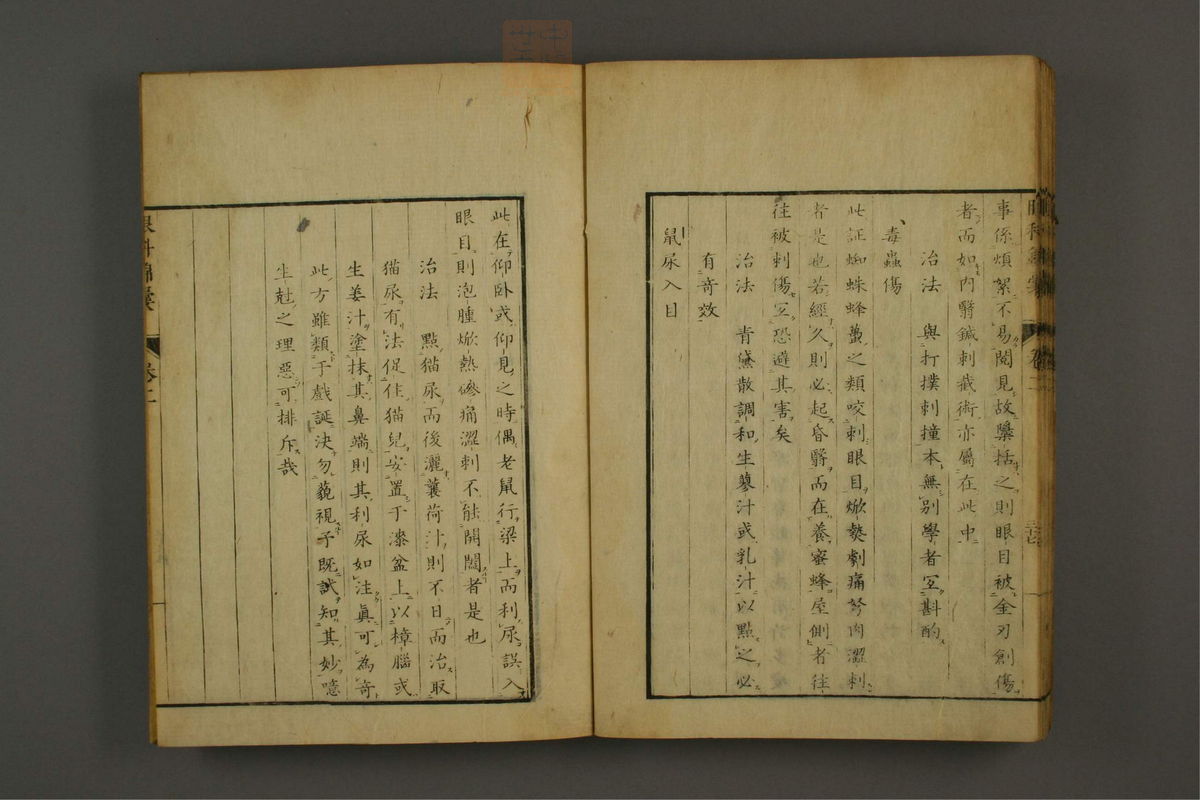 事係煩絮不易閱見故櫽括之則眼目被金刃創傷
者而如內翳鍼刺截術亦屬在此中
治法 與打撲刺撞本無別學者宐斟酌
毒蟲傷
此証蜘蛛蜂蠆之類咬刺眼目焮㷉劇痛努肉澀刺
者是也若經久則必起昏翳而在養蜜蜂屋側者往
往被刺傷宐恐避其害矣
治法 青黛散調和生蓼汁或乳汁以點之必
有奇效
鼠尿入目
此在仰卧或仰見之時偶老鼠行梁上而利尿誤入
眼目則泡腫焮熱磣痛澀刺不能開闔者是也
治法 點猫尿而後灑蘘荷汁則不日而治取
猫尿有法促住猫兒安置于漆盆上以樟腦或
生姜汁塗抹其鼻端則其利尿如注眞可為奇
此方雖類于戲誕決勿藐視予既試知其妙噫
生尅之理惡可排斥哉
眼科錦囊
卷二